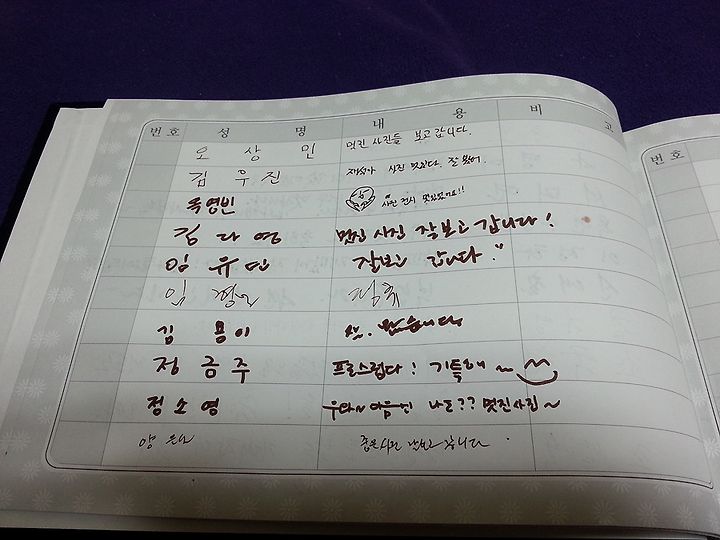 번호 성명 내용 비고
오상인 멋진 사진들 보고 갑니다.
김우진 사진 멋있다. 잘 봤어.
옥영빈 사진 전시 멋있었어요!!
김다영 멋진 사진 잘보고 갑니다!
임유민 잘보고 갑니다."
임
김용이 왔습니다
정금주 프로스럽다! 기특해~
정소영 우와~ 나도?? 멋진사진~
양은 좋은사진 보고 갑니다.
번호